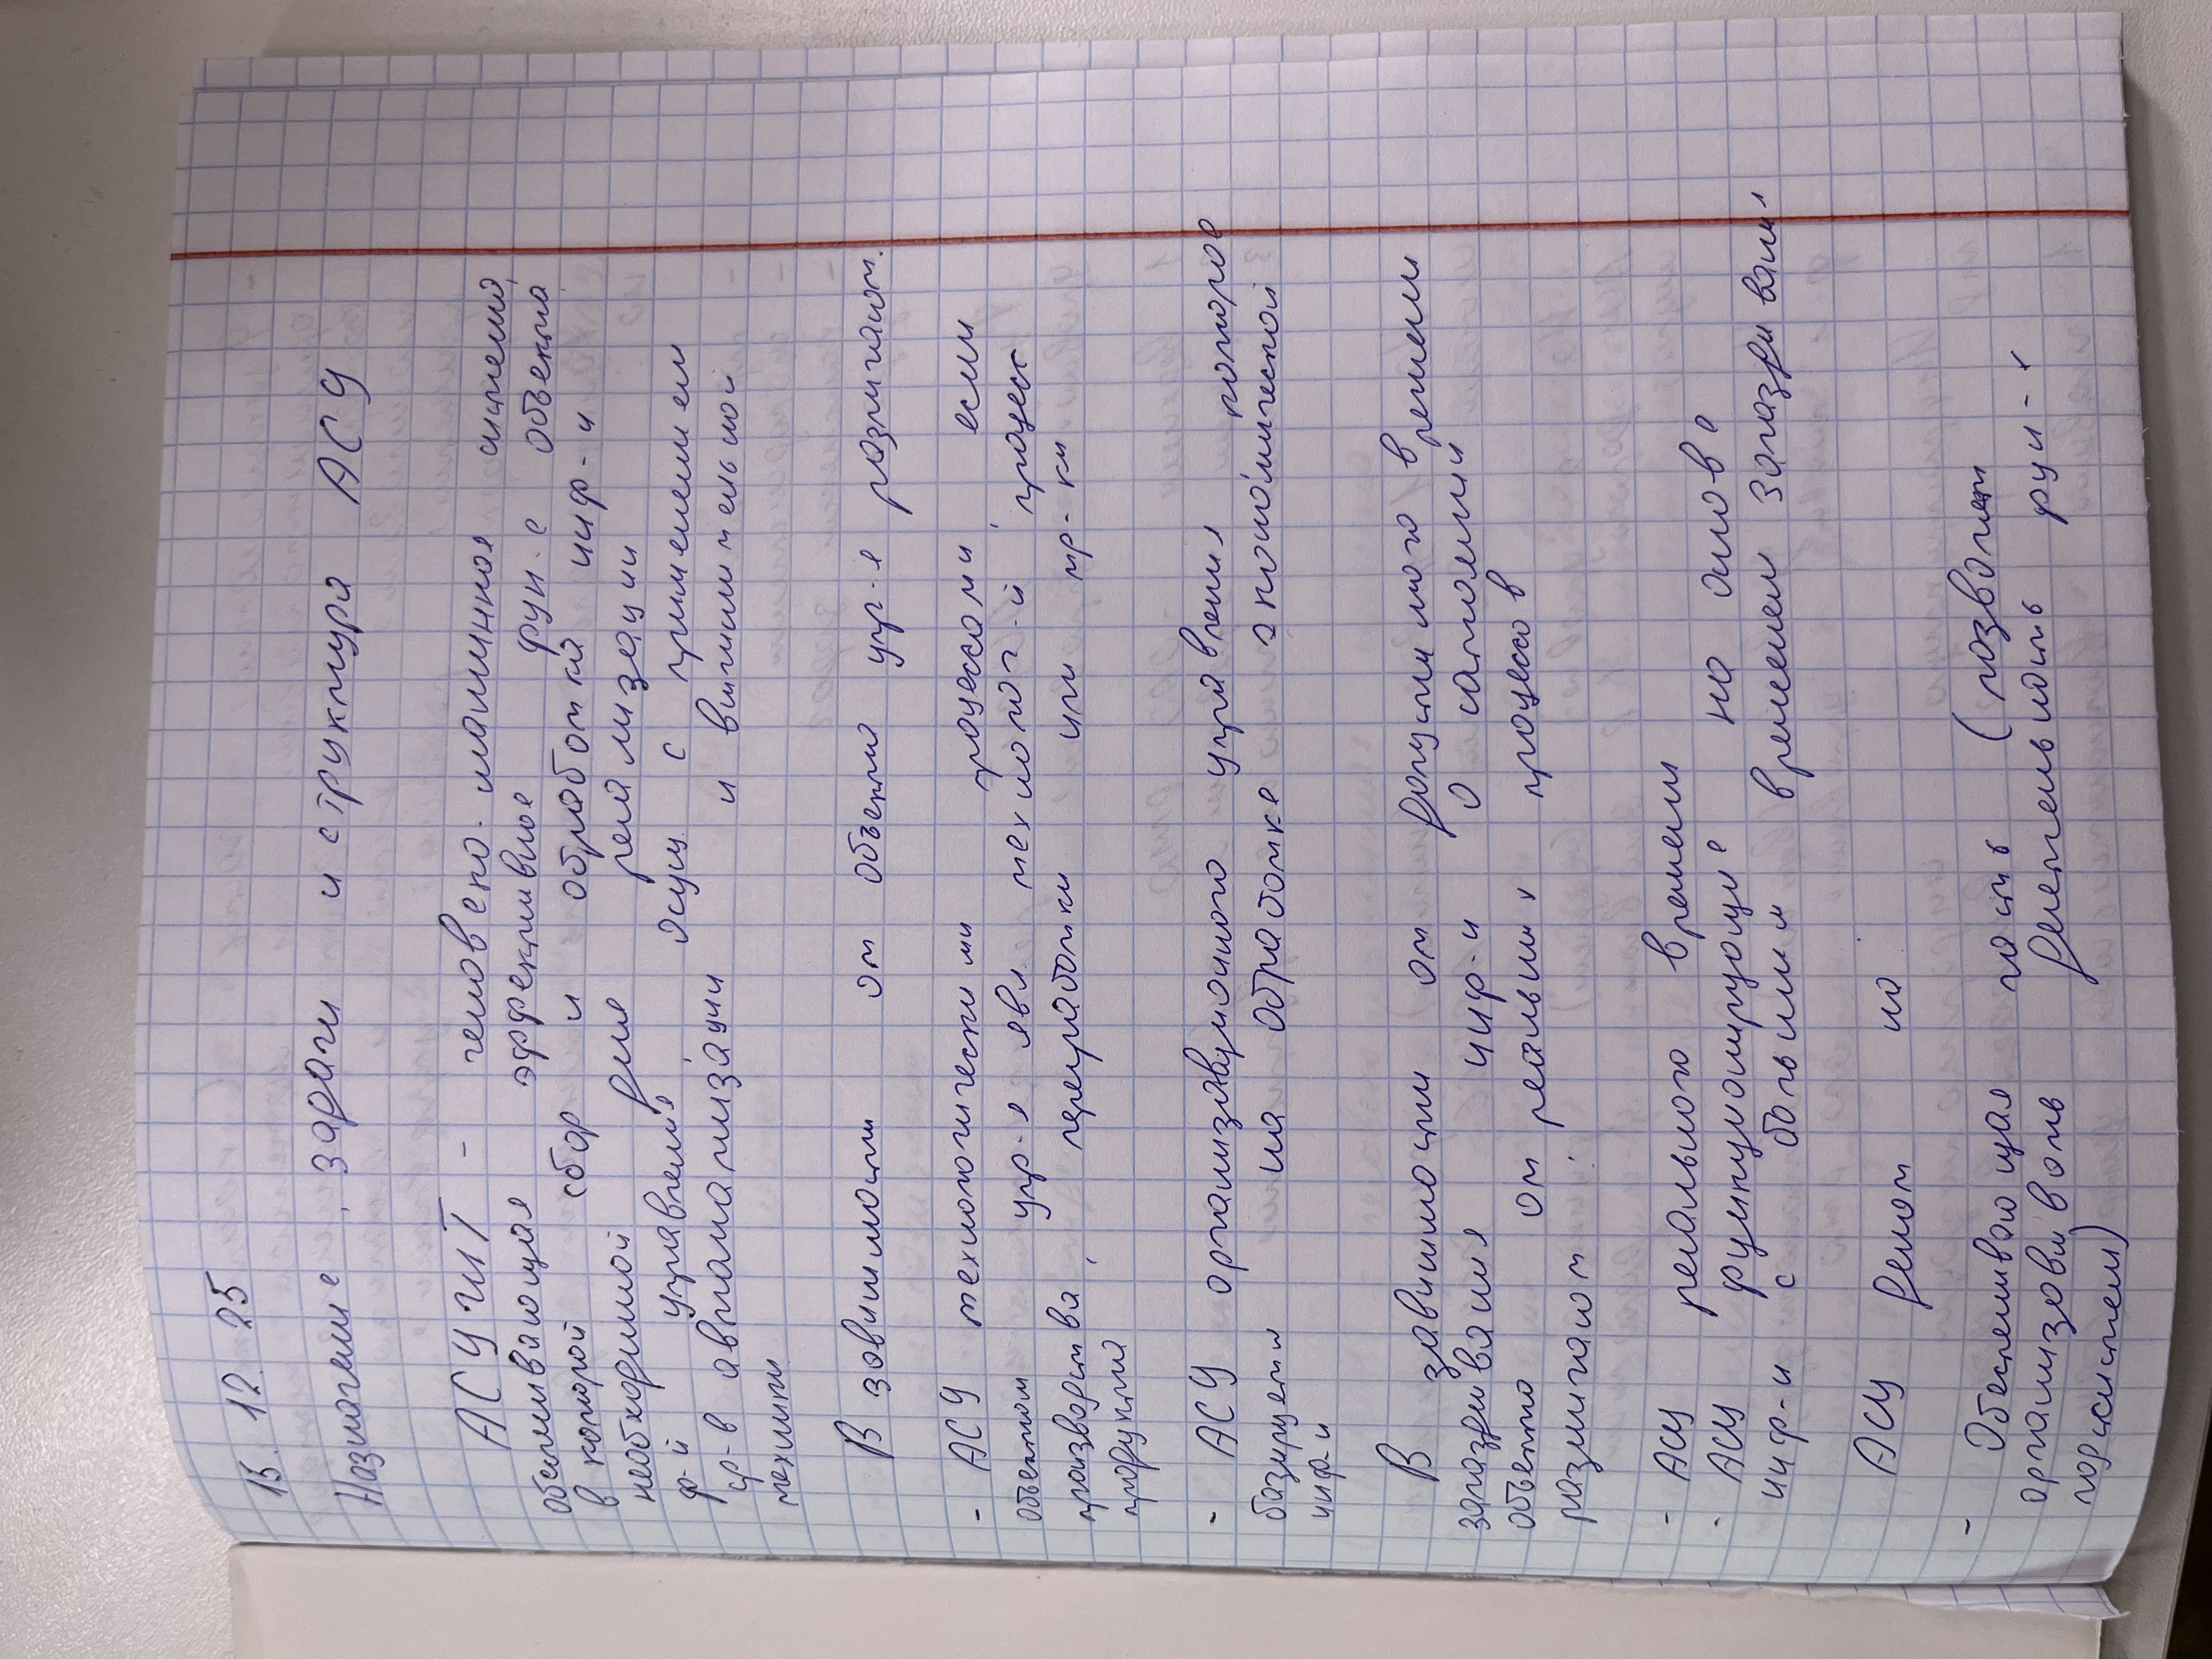 15. 12. 25
Назначение, задачи и структура АСУ
АСУ ЧИТ - человеко-машинная система,
обеспечивающая эффективное фун-е объекта
в которой сбор и обработка инф-и
необходимой для реализации
ф-й управления осущ с применением
ср-в автоматизации и вычислительной
техники
В зависимости от объекта упр-я различают.
- АСУ технологическими процессами, если
объектом упр-я явл технолог-й процесс
производства, переработки или тр-ки
продукта
- АСУ организационного управления которое
базируется на обработке экономической
инф-и
В зависимости от допустимого времени
запаздывания инф-и о состоянии
объекта от реальных процессов
различают:
- АСУ реального времени
- АСУ функционирующие на основе
инф-и с большим временем запаздывания
АСУ делят на
- Обеспечивающая часть (позволяет
организовывать деятельность фун-х
подсистем)